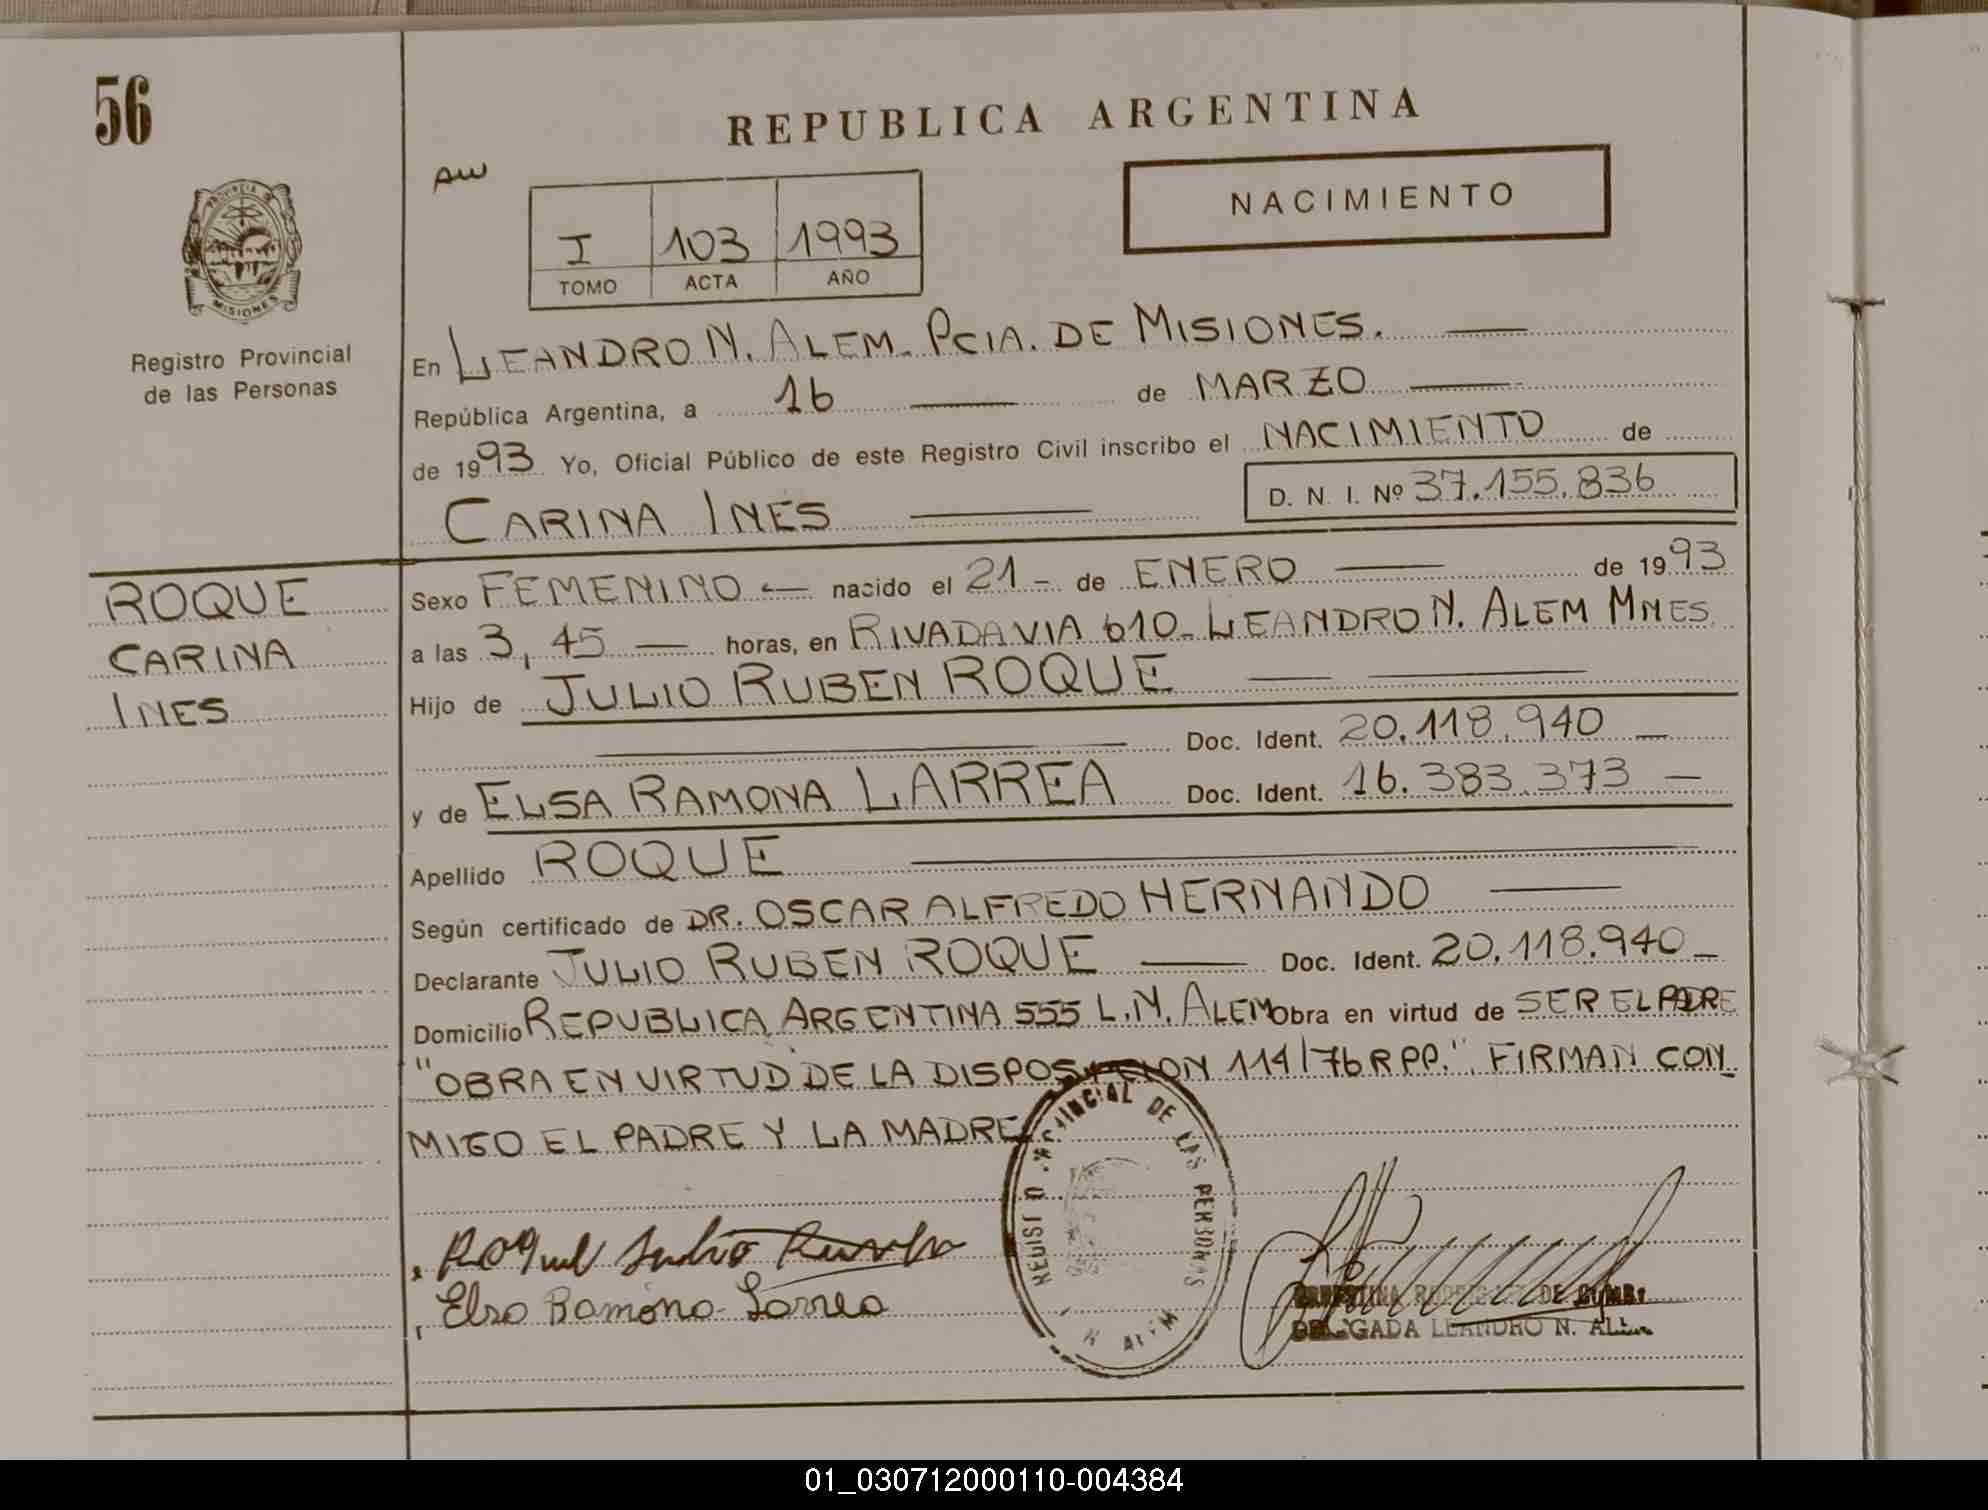 56
REPUBLICA ARGENTINA
NACIMIENTO
I 103 1993
TOMO ACTA AÑO
PROVINCIA DE
MISIONES
Registro Provincial
de las Personas
En LEANDRO N. ALEM. PCIA. DE MISIONES.
República Argentina, a 16 de MARZO
de 1993 Yo, Oficial Público de este Registro Civil inscribo el NACIMIENTO de
CARINA INES D. N. I. Nº 37.155.836
ROQUE
CARINA
INES
Sexo FEMENINO nacido el 21 - de ENERO de 1993
a las 3,45 horas, en RIVADAVIA 610 - LEANDRO N. ALEM MNES.
Hijo de JULIO RUBEN ROQUE
Doc. Ident. 20.118.940
y de ELSA RAMONA LARREA Doc. Ident. 16.383.373
Apellido ROQUE
Según certificado de DR. OSCAR ALFREDO HERNANDO
Declarante JULIO RUBEN ROQUE Doc. Ident. 20.118.940
Domicilio REPUBLICA ARGENTINA 555 L.N. ALEM Obra en virtud de SER EL PADRE
"OBRA EN VIRTUD DE LA DISPOSICION 114/76 RPP.". FIRMAN CON_
MIGO EL PADRE Y LA MADRE
PROVINCIAL DE LAS PERSONAS
N ALEM
Roque Julio Ruben
Elsa Ramona Larrea
DELEGADA LEANDRO N. ALEM
01_030712000110-004384